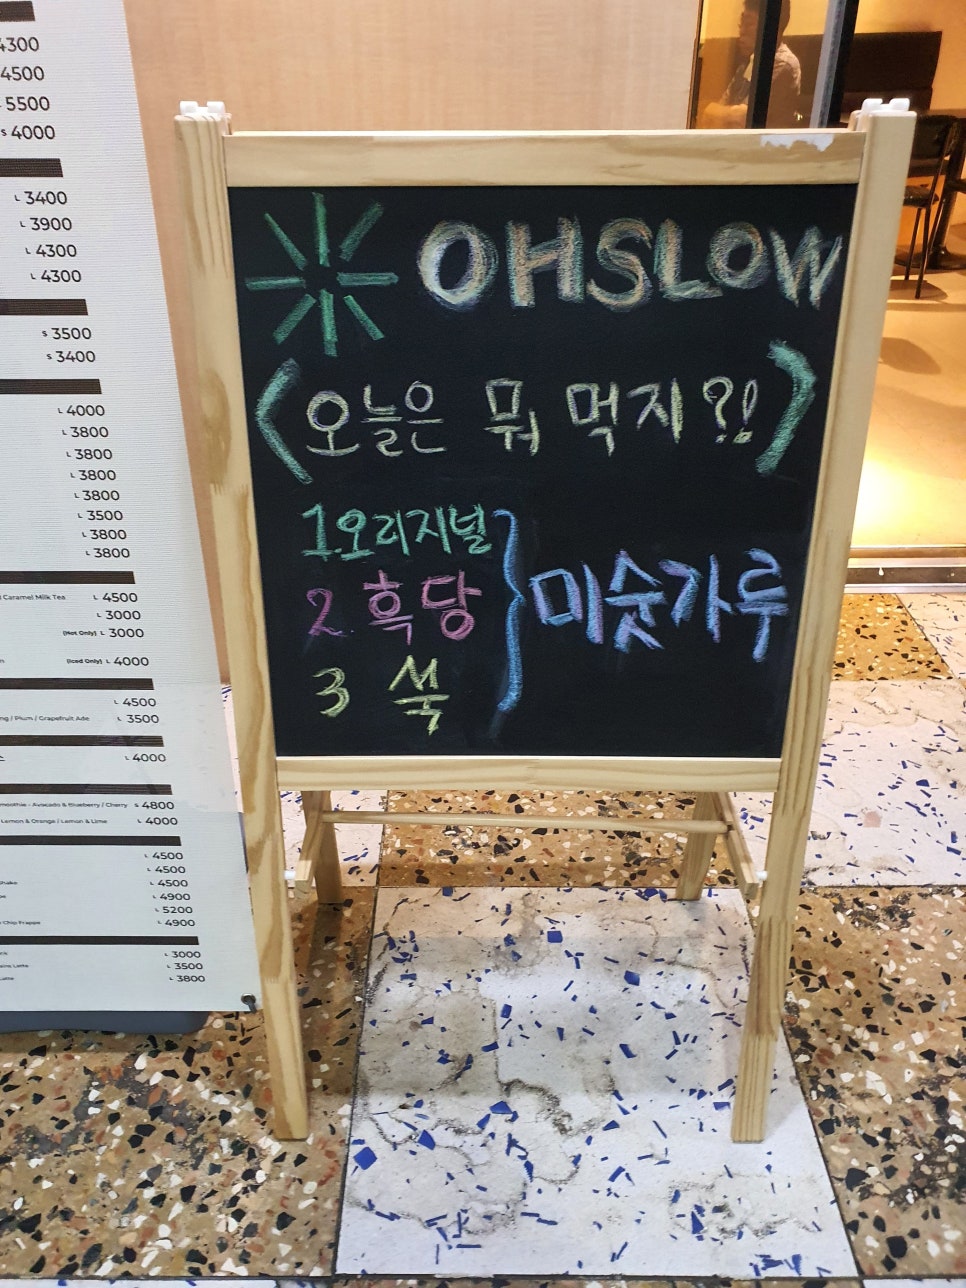 OHSLOW
오늘은 뭐 먹지?!
1.오리지널
2. 흑당
3 쑥
미숫가루
4300
4500
5500
S 4000
L 3400
L 3900
L 4300
L 4300
S 3500
S 3400
L 4000
L 3800
L 3800
L 3800
L 3800
L 3500
L 3800
L 3800
Caramel Milk Tea L 4500
L 3000
(Hot Only) L 3000
(Iced Only) L 4000
L 4500
/ Plum / Grapefruit Ade L 3500
L 4000
Smoothie - Avocado & Blueberry / Cherry S 4800
Lemon & Orange / Lemon & Lime L 4000
L 4500
L 4500
L 4500
L 4900
L 5200
Chip Frappe L 4900
L 3000
Latte L 3500
L 3800